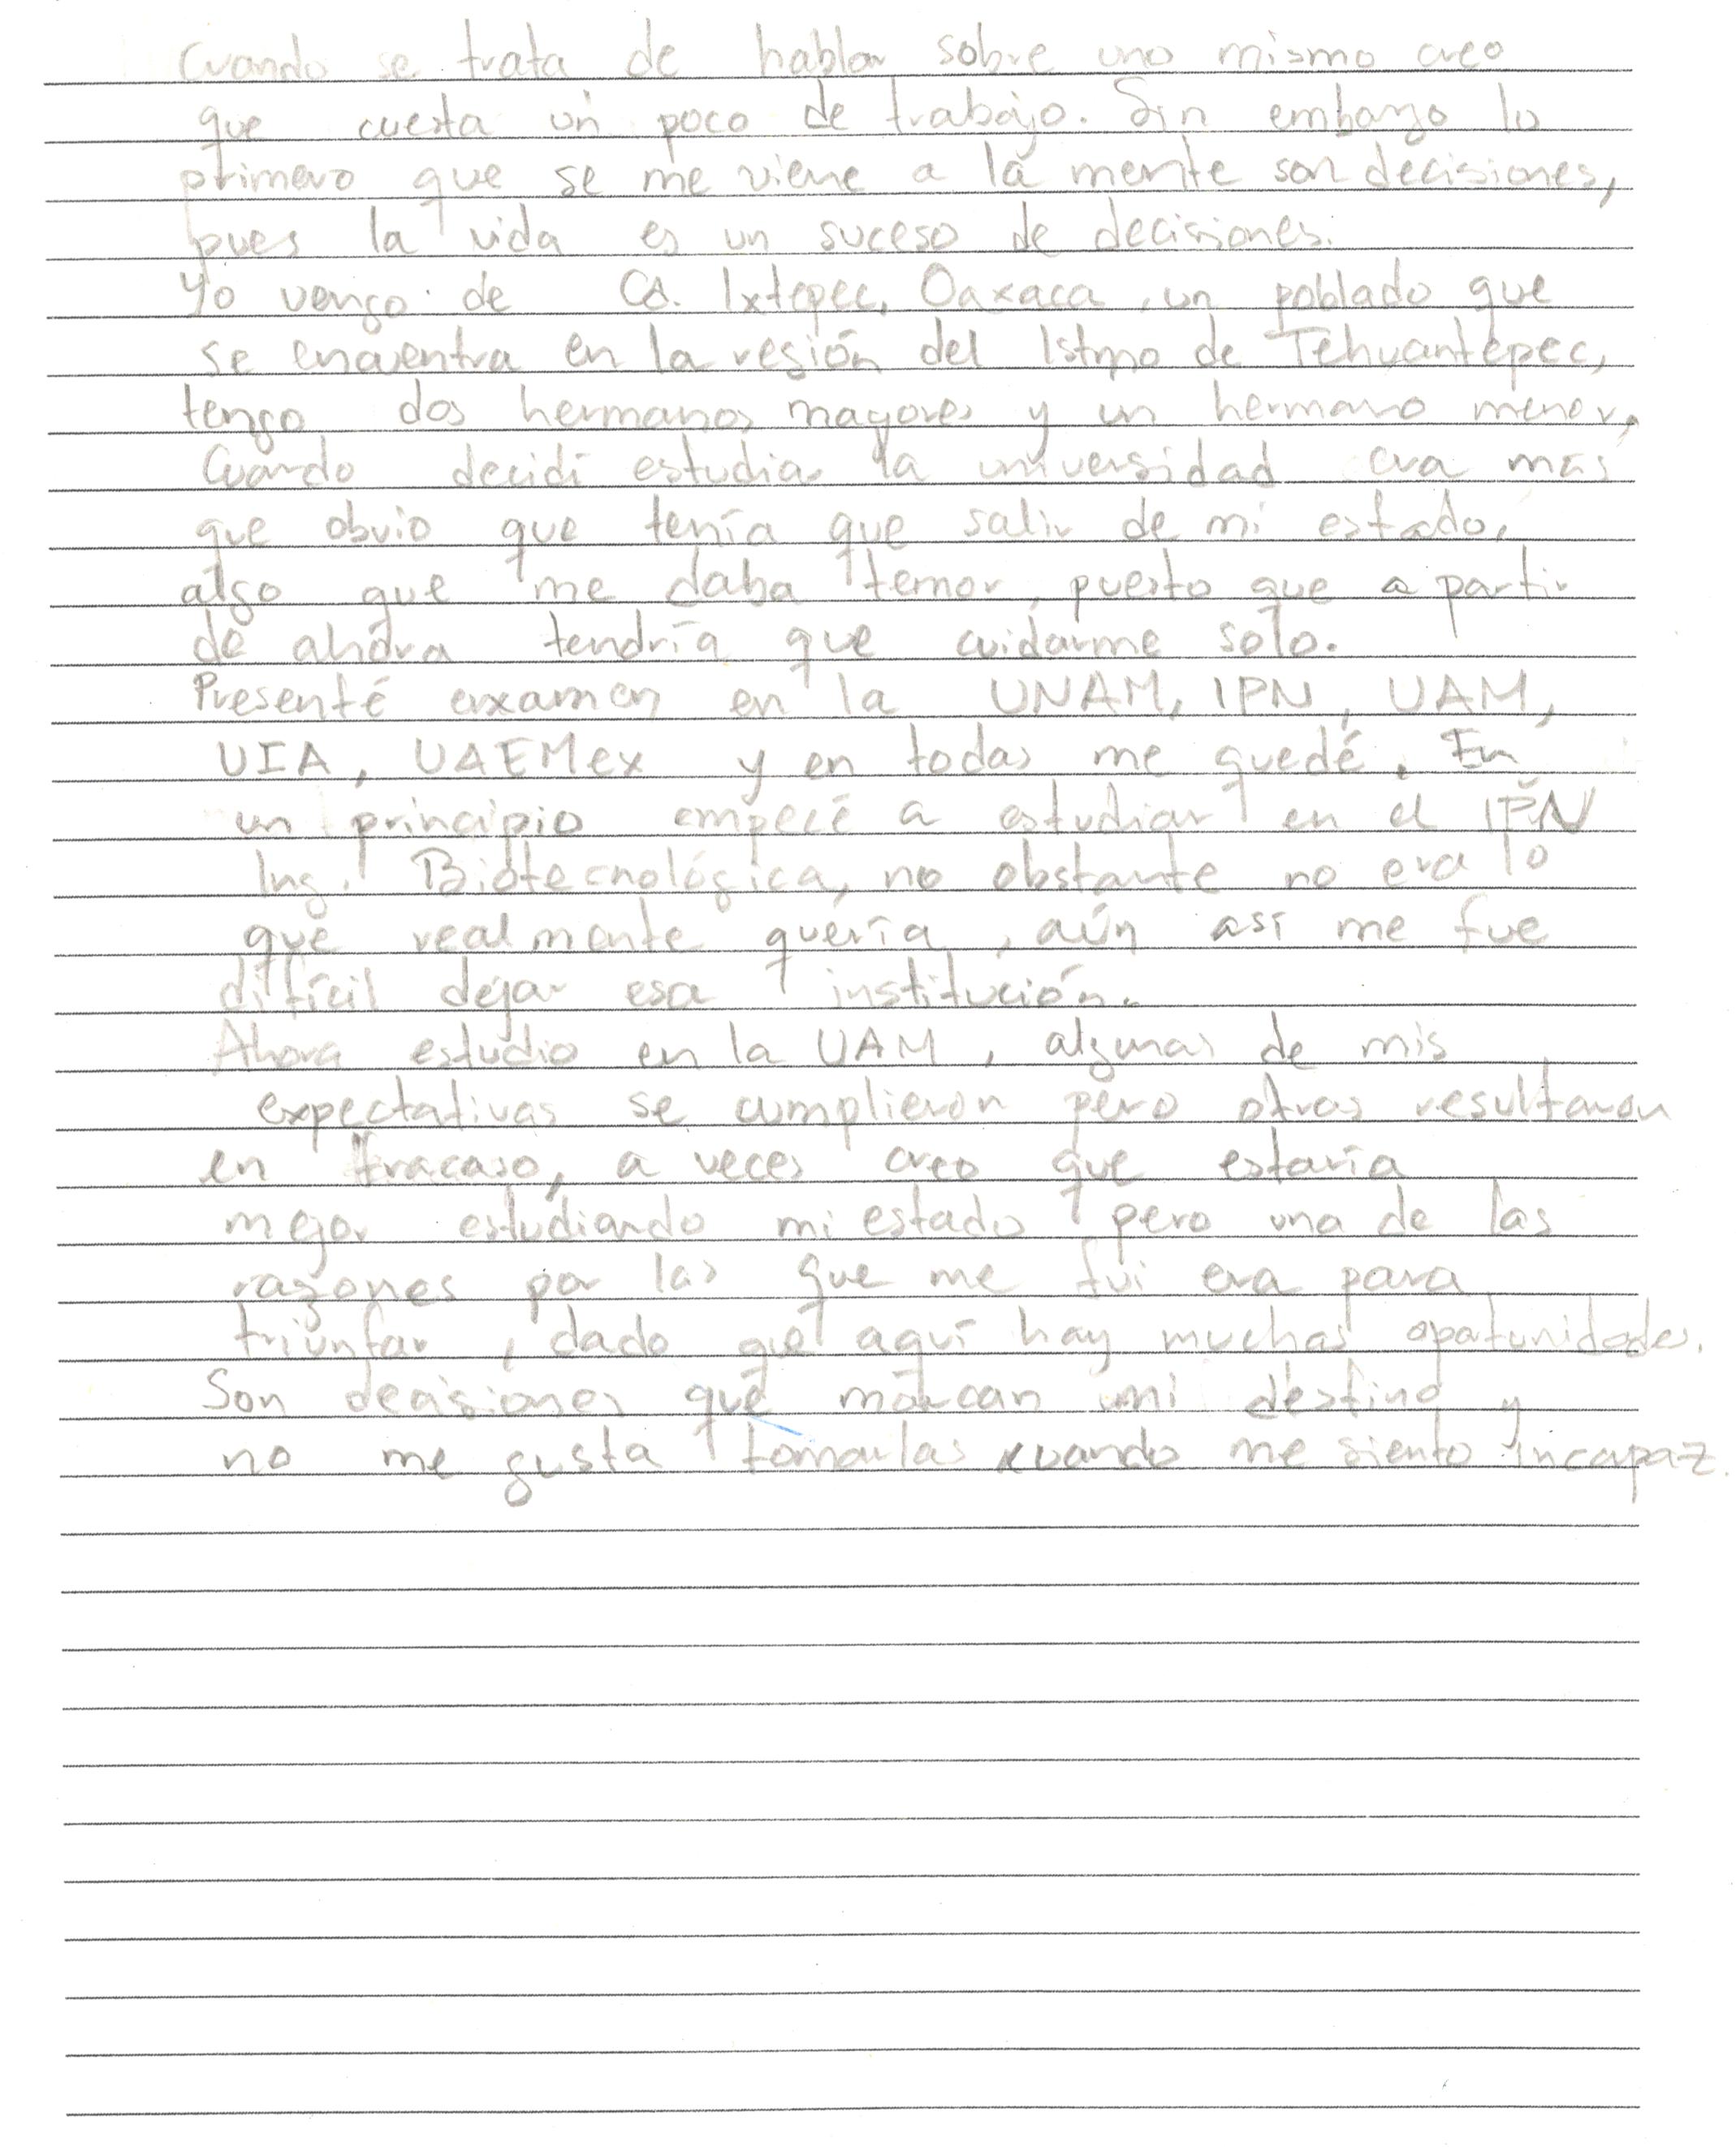 Cuando se trata de hablar sobre uno mismo creo
que cuesta un poco de trabajo. Sin embargo lo
primero que se me viene a la mente son decisiones,
pues la vida es un suceso de decisiones.
Yo vengo de Cd. Ixtepec, Oaxaca, un poblado que
se encuentra en la región del Istmo de Tehuantepec,
tengo dos hermanos mayores y un hermano menor,
Cuando decidí estudiar la universidad era más
que obvio que tenía que salir de mi estado,
algo que me daba temor, puesto que a partir
de ahora tendría que cuidarme solo.
Presenté examen en la UNAM, IPN, UAM,
UIA, UAEMex y en todas me quedé. En
un principio empecé a estudiar en el IPN
Ing. Biotecnológica, no obstante no era lo
que realmente quería, aún así me fue
difícil dejar esa institución.
Ahora estudio en la UAM, algunas de mis
expectativas se cumplieron pero otras resultaron
en fracaso, a veces creo que estaría
mejor estudiando mi estado pero una de las
razones por las que me fui era para
triunfar, dado que aquí hay muchas opatunidades.
Son decisiones que marcan mi destino y
no me gusta tomarlas cuando me siento incapaz.